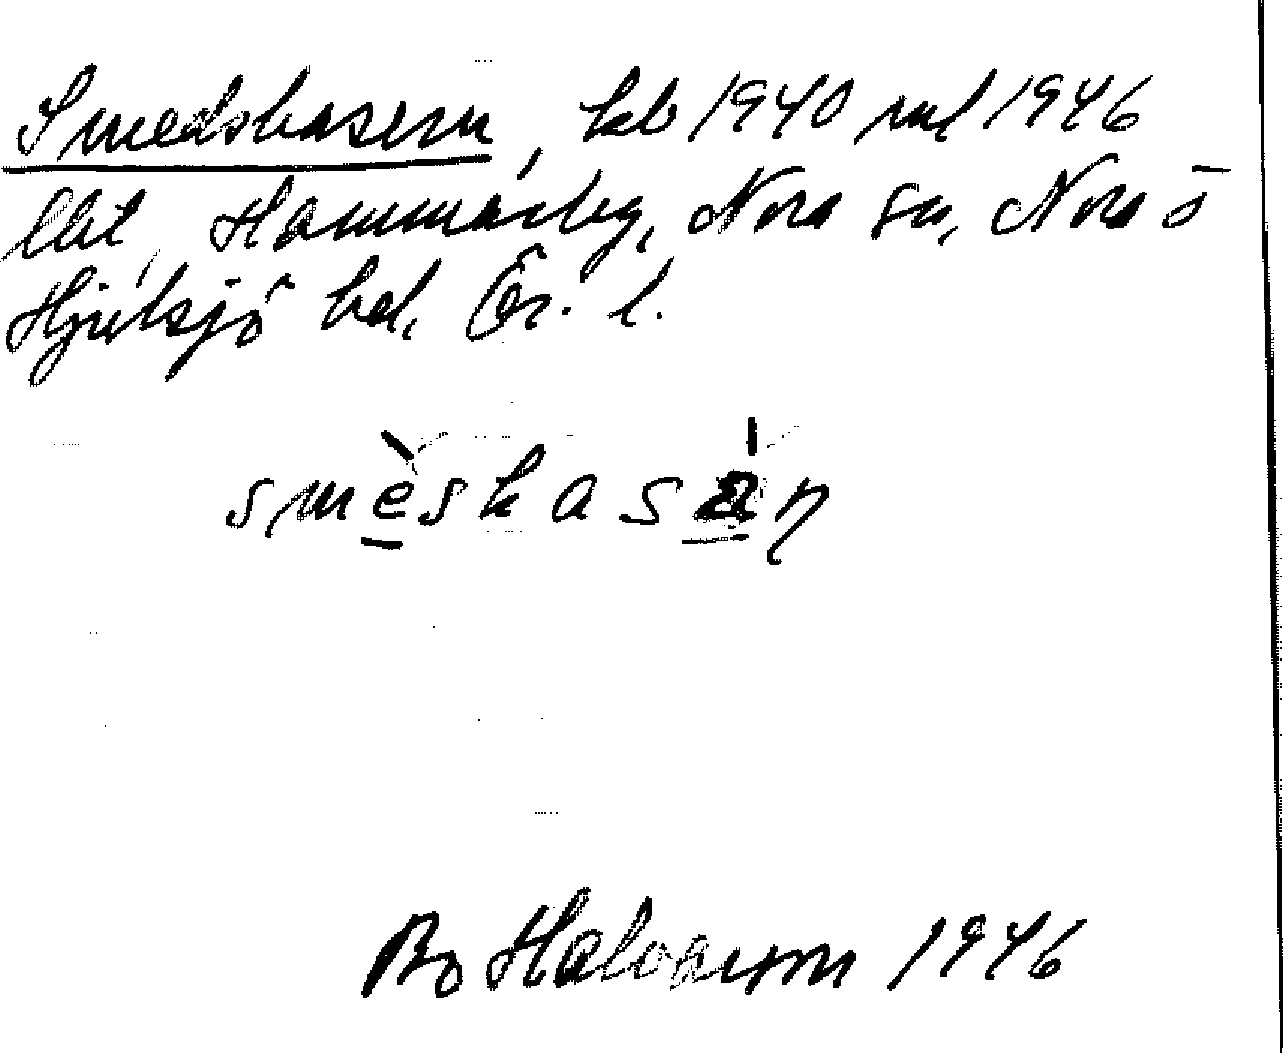 Smedskasern, kb 1940 rul 1946
lht, Hammarby, Nora sn, Nora o
Hjulsjö bd. Ör. l.
smèskasàn
Bo Halvarson 1946